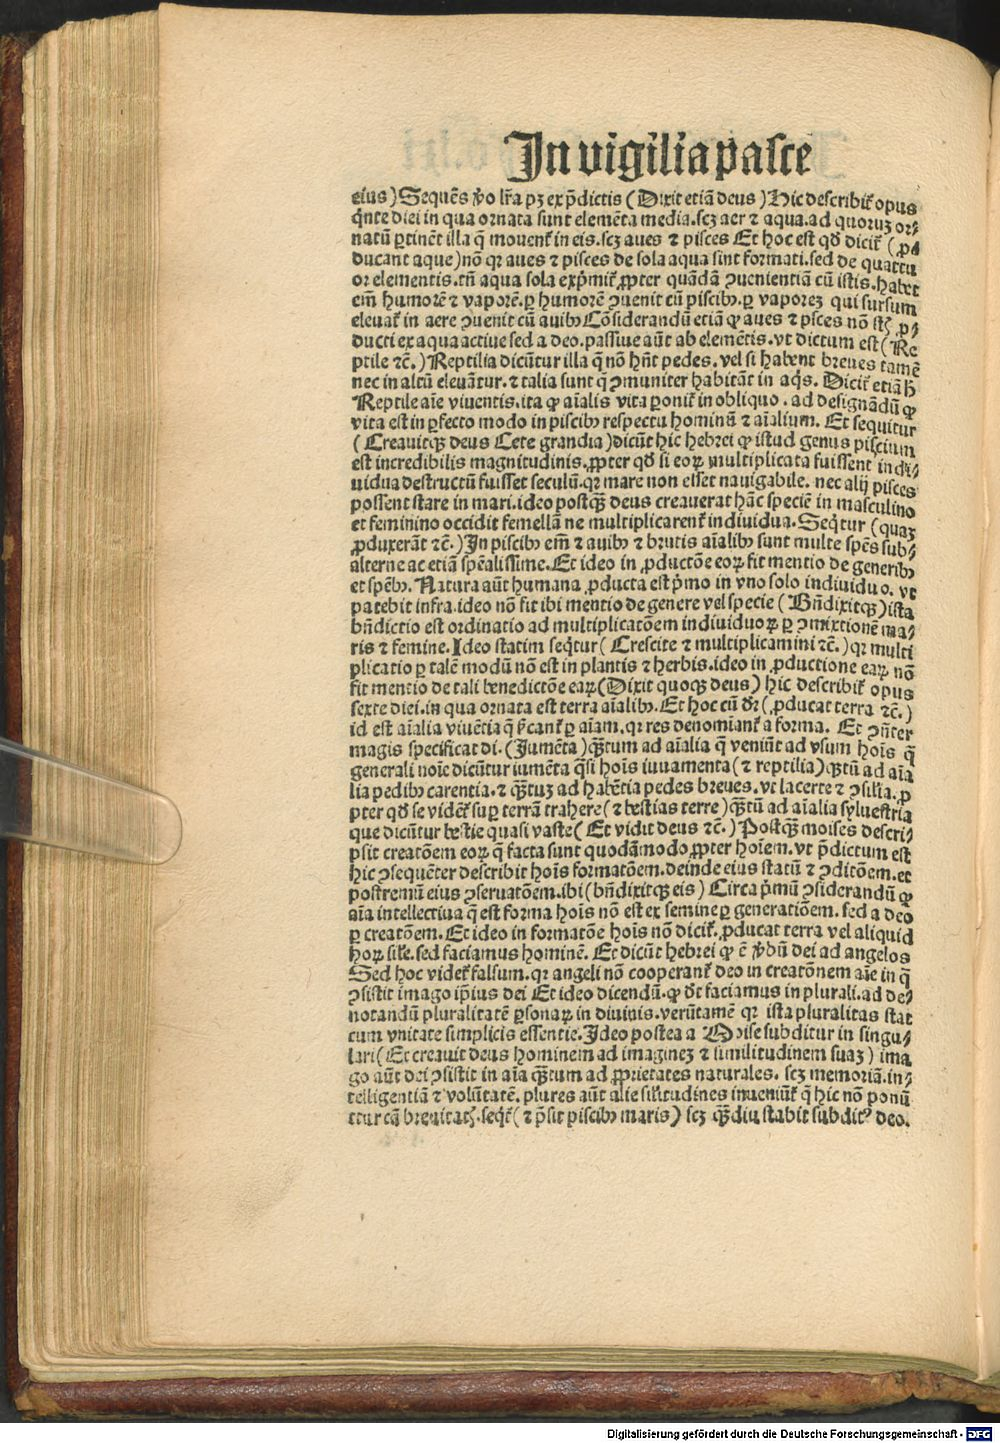 In vigilia pasce
eius) Sequēs ꝟo lr̄a pꝫ ex p̄dictis (Dixit etiā deus) Hic describit᷑ opus
q̄nte diei in qua ornata sunt elemēta media.scꝫ aer ⁊ aqua.ad quoruꝫ or⸗
natū ꝑtinēt illa q̄ mouent᷑ in eis.scꝫ aues ⁊ pisces Et hoc est qd̄ dicit᷑ (ꝓ⸗
ducant aque) nō qꝛ aues ⁊ pisces de sola aqua sint formati.sed de quattu
or elementis.tn̄ aqua sola exp̄mit᷑ ꝓpter quādā ꝯuenientiā cū istis.habet
em̄ humorē ⁊ vaporē.ꝑ humorē ꝯuenit cū piscibꝰ.ꝑ vaporeꝫ qui sursum
eleuat᷑ in aere ꝯuenit cū auibꝰ Cōsiderandū etiā ꝙ aues ⁊ pisces nō st̄ ꝓ⸗
ducti ex aqua actiue sed a deo.passiue aūt ab elemētis.vt dictum est (Re
ptile ⁊c̄.) Reptilia dicūtur illa q̄ nō hn̄t pedes.vel si habent breues tamē
nec in altū eleuātur.⁊ talia sunt q̄ ꝯmuniter habitāt in aq̄s. Dicit᷑ etiā h̄
Reptile aīe viuentis.ita ꝙ aīalis vita ponit᷑ in obliquo.ad designādū ꝙ
vita est in ꝑfecto modo in piscibꝰ respectu hominū ⁊ aīalium. Et sequitur
(Creauitqꝫ deus Cete grandia) dicūt hic hebrei ꝙ istud genus piscium
est incredibilis magnitudinis.ꝓpter qd̄ si eoꝝ multiplicata fuissent indi⸗
uidua destructū fuisset seculū.qꝛ mare non esset nauigabile. nec alij pisces
possent stare in mari.ideo postqꝫ̄ deus creauerat hāc speciē in masculino
et feminino occidit femellā ne multiplicarent᷑ indiuidua. Seq̄tur (quaꝫ
ꝓduxerāt ⁊c̄.) In piscibꝰ em̄ ⁊ auibꝰ ⁊ brutis aīalibꝰ sunt multe spēs sub⸗
alterne ac etiā spēalissime. Et ideo in ꝓductōe eoꝝ fit mentio de generibꝰ
et spēbꝰ. Natura aūt humana ꝓducta est p̄mo in vno solo indiuiduo. vt
patebit infra.ideo nō fit ibi mentio de genere vel specie (Bn̄dixitqꝫ) ista
bn̄dictio est ordinatio ad multiplicatōem indiuiduoꝝ ꝑ ꝯmixtionē ma⸗
ris ⁊ femine. Ideo statim seq̄tur (Crescite ⁊ multiplicamini ⁊c̄.) qꝛ multi
plicatio ꝑ talē modū nō est in plantis ⁊ herbis.ideo in ꝓductione eaꝝ nō
fit mentio de tali benedictōe eaꝝ (Dixit quoqꝫ deus) hic describit᷑ opus
sexte diei.in qua ornata est terra aīalibꝰ. Et hoc cū dr̄ (ꝓducat terra ⁊c̄.)
id est aīalia viuētia q̄ v̄cant᷑ ꝑ aīam.qꝛ res denomīant᷑ a forma. Et ꝯn̄ter
magis specificat di. (Jumēta) qꝫ̄tum ad aīalia q̄ veniūt ad vsum hoīs q̄
generali noīe dicūtur iumēta q̄si hoīs iuuamenta (⁊ reptilia) qꝫ̄tū ad aīa
lia pedibꝰ carentia.⁊ qꝫ̄tuꝫ ad habētia pedes breues.vt lacerte ⁊ ꝯsil᷑ia.ꝓ
pter qd̄ se vident᷑ suꝑ terrā trahere (⁊ bestias terre) qꝫ̄tū ad aīalia syluestria
que dicūtur bestie quasi vaste (Et vidit deus ⁊c̄.) Postqꝫ̄ moises descri⸗
psit creatōem eoꝝ q̄ facta sunt quodāmodo ꝓpter hoīem.vt p̄dictum est
hic ꝯsequēter describit hoīs formatōem.deinde eius statū ⁊ ꝯditōem.et
postremū eius ꝯseruatōem.ibi (bn̄dixitqꝫ eis) Circa p̄mū ꝯsiderandū ꝙ
aīa intellectiua q̄ est forma hoīs nō est ex semine ꝑ generatiōem. sed a deo
ꝑ creatōem. Et ideo in formatōe hoīs nō dicit᷑.ꝓducat terra vel aliquid
hoꝝ sil᷑e.sed faciamus hominē. Et dicūt hebrei ꝙ ē ꝟbū dei ad angelos
Sed hoc videt᷑ falsum.qꝛ angeli nō cooperant᷑ deo in creatōnem aīe in q̄
ꝯsistit imago ip̄ius dei Et ideo dicendū.ꝙ dt̄ faciamus in plurali.ad de⸗
notandū pluralitatē ꝑsonaꝝ in diuinis.verūtamē qꝛ ista pluralitas stat
cum vnitate simplicis essentie. Ideo postea a Moise subditur in singu⸗
lari (Et creauit deus hominem ad imagineꝫ ⁊ similitudinem suaꝫ) ima
go aūt dei ꝯsistit in aīa qꝫ̄tum ad ꝓprietates naturales. scꝫ memoriā.in⸗
telligentiā ⁊ volūtatē. plures aūt alie sil᷑itudines inueniūt᷑ q̄ hic nō ponū
tur cā breuitatꝭ.seqt᷑ (⁊ p̄sit piscibꝰ maris) scꝫ qꝫ̄diu stabit subditꝰ deo.
Digitalisierung gefördert durch die Deutsche Forschungsgemeinschaft - DFG